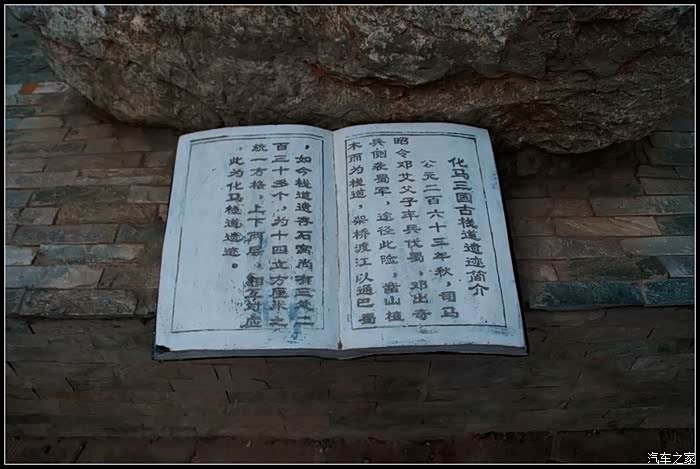 化马三国古栈道遗迹简介
公元二百六十三年秋，司马
昭令邓艾父子率兵伐蜀，邓出奇
兵侧袭蜀军，途径此险，凿山植
木而为栈道，架桥渡江以通巴蜀
，如今栈道遗存石窝尚有三
百三十多个，为十四立方厘米之
统一方格，上下两层，相互对应
。此为化马栈道遗迹。
汽车之家